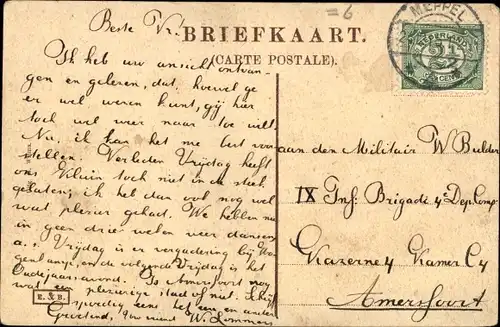 = 6
MEPPEL
Beste Vr!
BRIEFKAART.
(CARTE POSTALE).
NEDERLAND
2½
CENT
Ik heb uw ansicht ontvan-
gen en gelezen, dat, hoewel ge
er wel wezen kunt, gij hier
toch wel weer naar toe wilt.
Nu, ik kan het me best voor-
stellen. Verleden Vrijdag heeft
ons toch niet in de steek
gelaten; ik heb dan ook nog wel
wat plezier gehad. We hebben nu
in geen drie weken weer dansen
a.s. Vrijdag is er vergadering bij
en de volgende Vrijdag is het
Oudejaarsavond. Is Amersfoort nog
wat een plezierige stad of niet. Schrijf
spoedig eens het een en ander
Gegroet, uw vriend W. Lommers
E. & B.
aan den Militair W Bulder
IX Inf: Brigade 4e Dep Komp
Kazerne 4 Kamer C4
Amersfoort